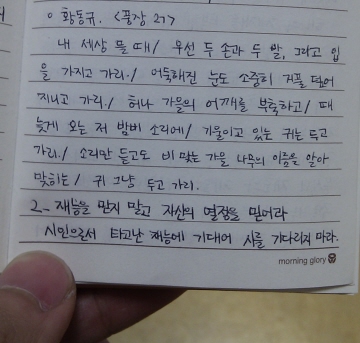 ◦ 황동규. <풍장 27>
내 세상 뜰 때/ 우선 두 손과 두 발, 그리고 입
을 가지고 가리./ 어둑해진 눈도 소중히 거풀 덮어
지니고 가리./ 허나 가을의 어깨를 부축하고/ 때
늦게 오는 저 밤비 소리에/ 기울이고 있는 귀는 두고
가리./ 소리만 듣고도 비 맞는 가을 나무의 이름을 알아
맞히는/ 귀 그냥 두고 가리.
2- 재능을 믿지 말고 자신의 열정을 믿어라
시인으로서 타고난 재능에 기대어 시를 기다리지 마라.
morning glory